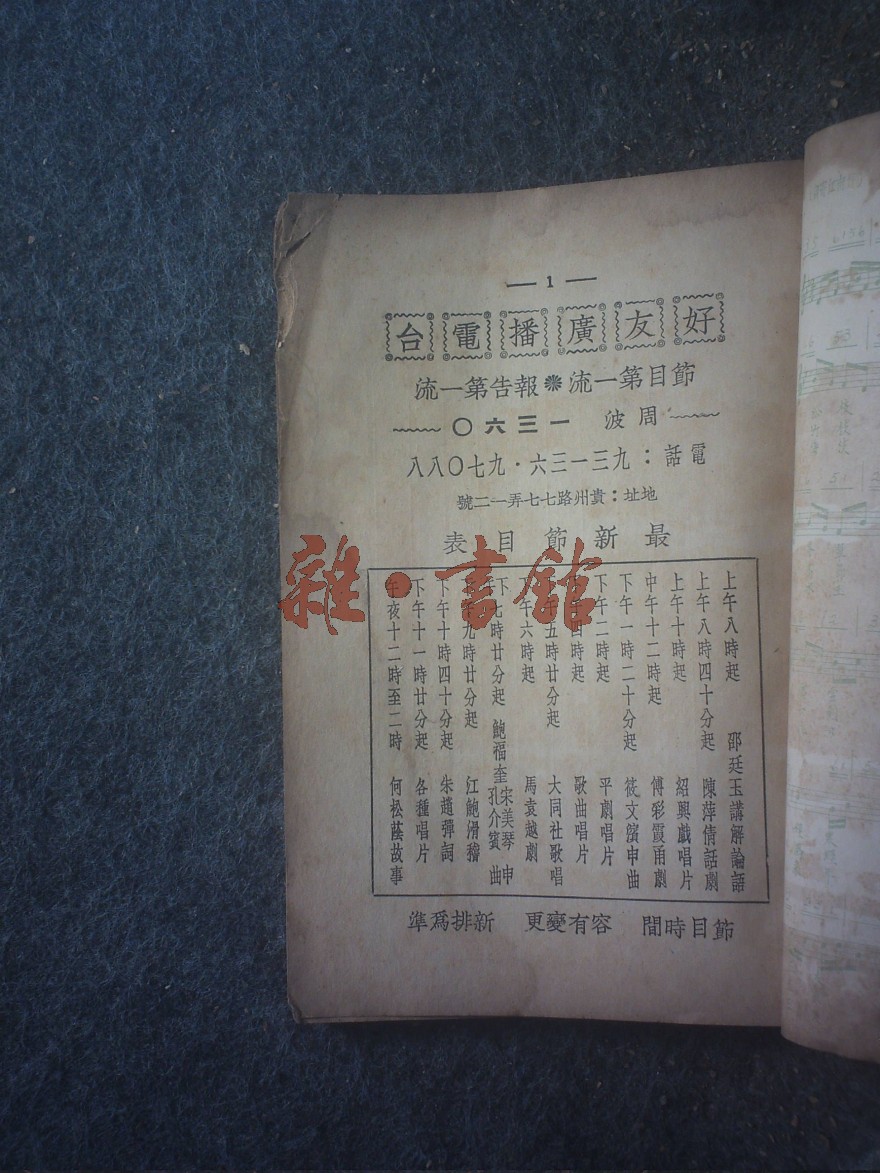 — 1 —
好友廣播電台
節目第一流❋報告第一流
周波 一三六〇
電話：九三一三六·九七〇八八
地址：貴州路七七弄一二號
最新節目表
上午八時起 邵廷玉講解論語
上午八時四十分起 陳萍倩話劇
上午十時起 紹興戲唱片
中午十二時起 傅彩霞甬劇
下午一時二十分起 筱文濱申曲
下午二時起 平劇唱片
四時起 歌曲唱片
午五時廿分起 大同社歌唱
午六時起 馬袁越劇
下午七時廿分起 鮑福奎 宋美琴 孔介賓 申曲
午九時廿分起 江鮑滑稽
下午十時四十分起 朱趙彈詞
下午十一時廿分起 各種唱片
午夜十二時至二時 何松蔭故事
節目時間 容有變更 新排爲準
雜·書館